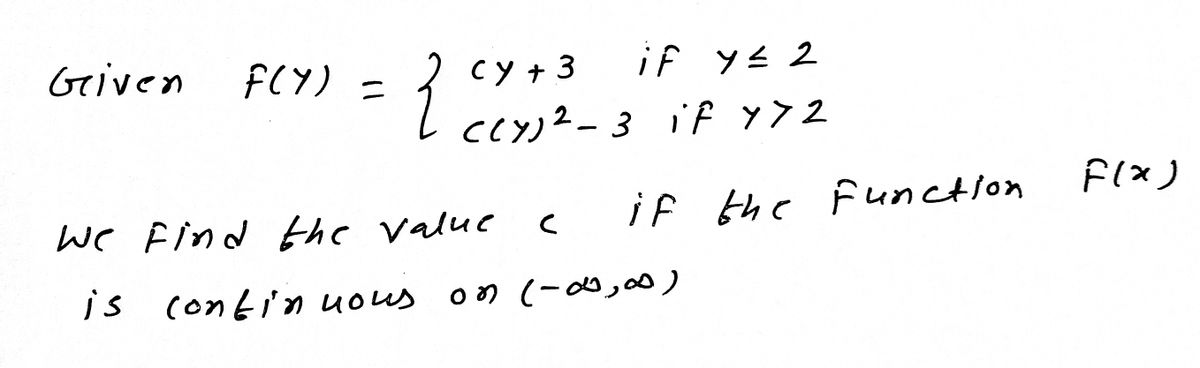 Given F(Y) = { cy + 3 if y ≤ 2
c(y)² - 3 if y > 2
We Find the value c if the Function F(x)
is continuous on (-∞,∞)